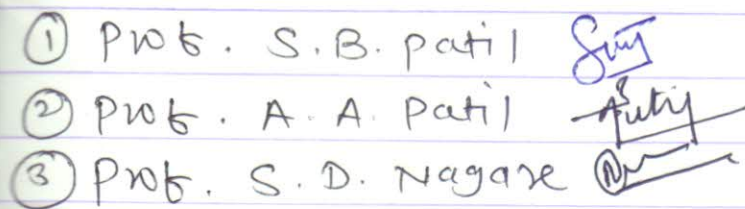 ① Prof. S.B. Patil
② Prof. A.A. Patil
③ Prof. S.D. Nagare